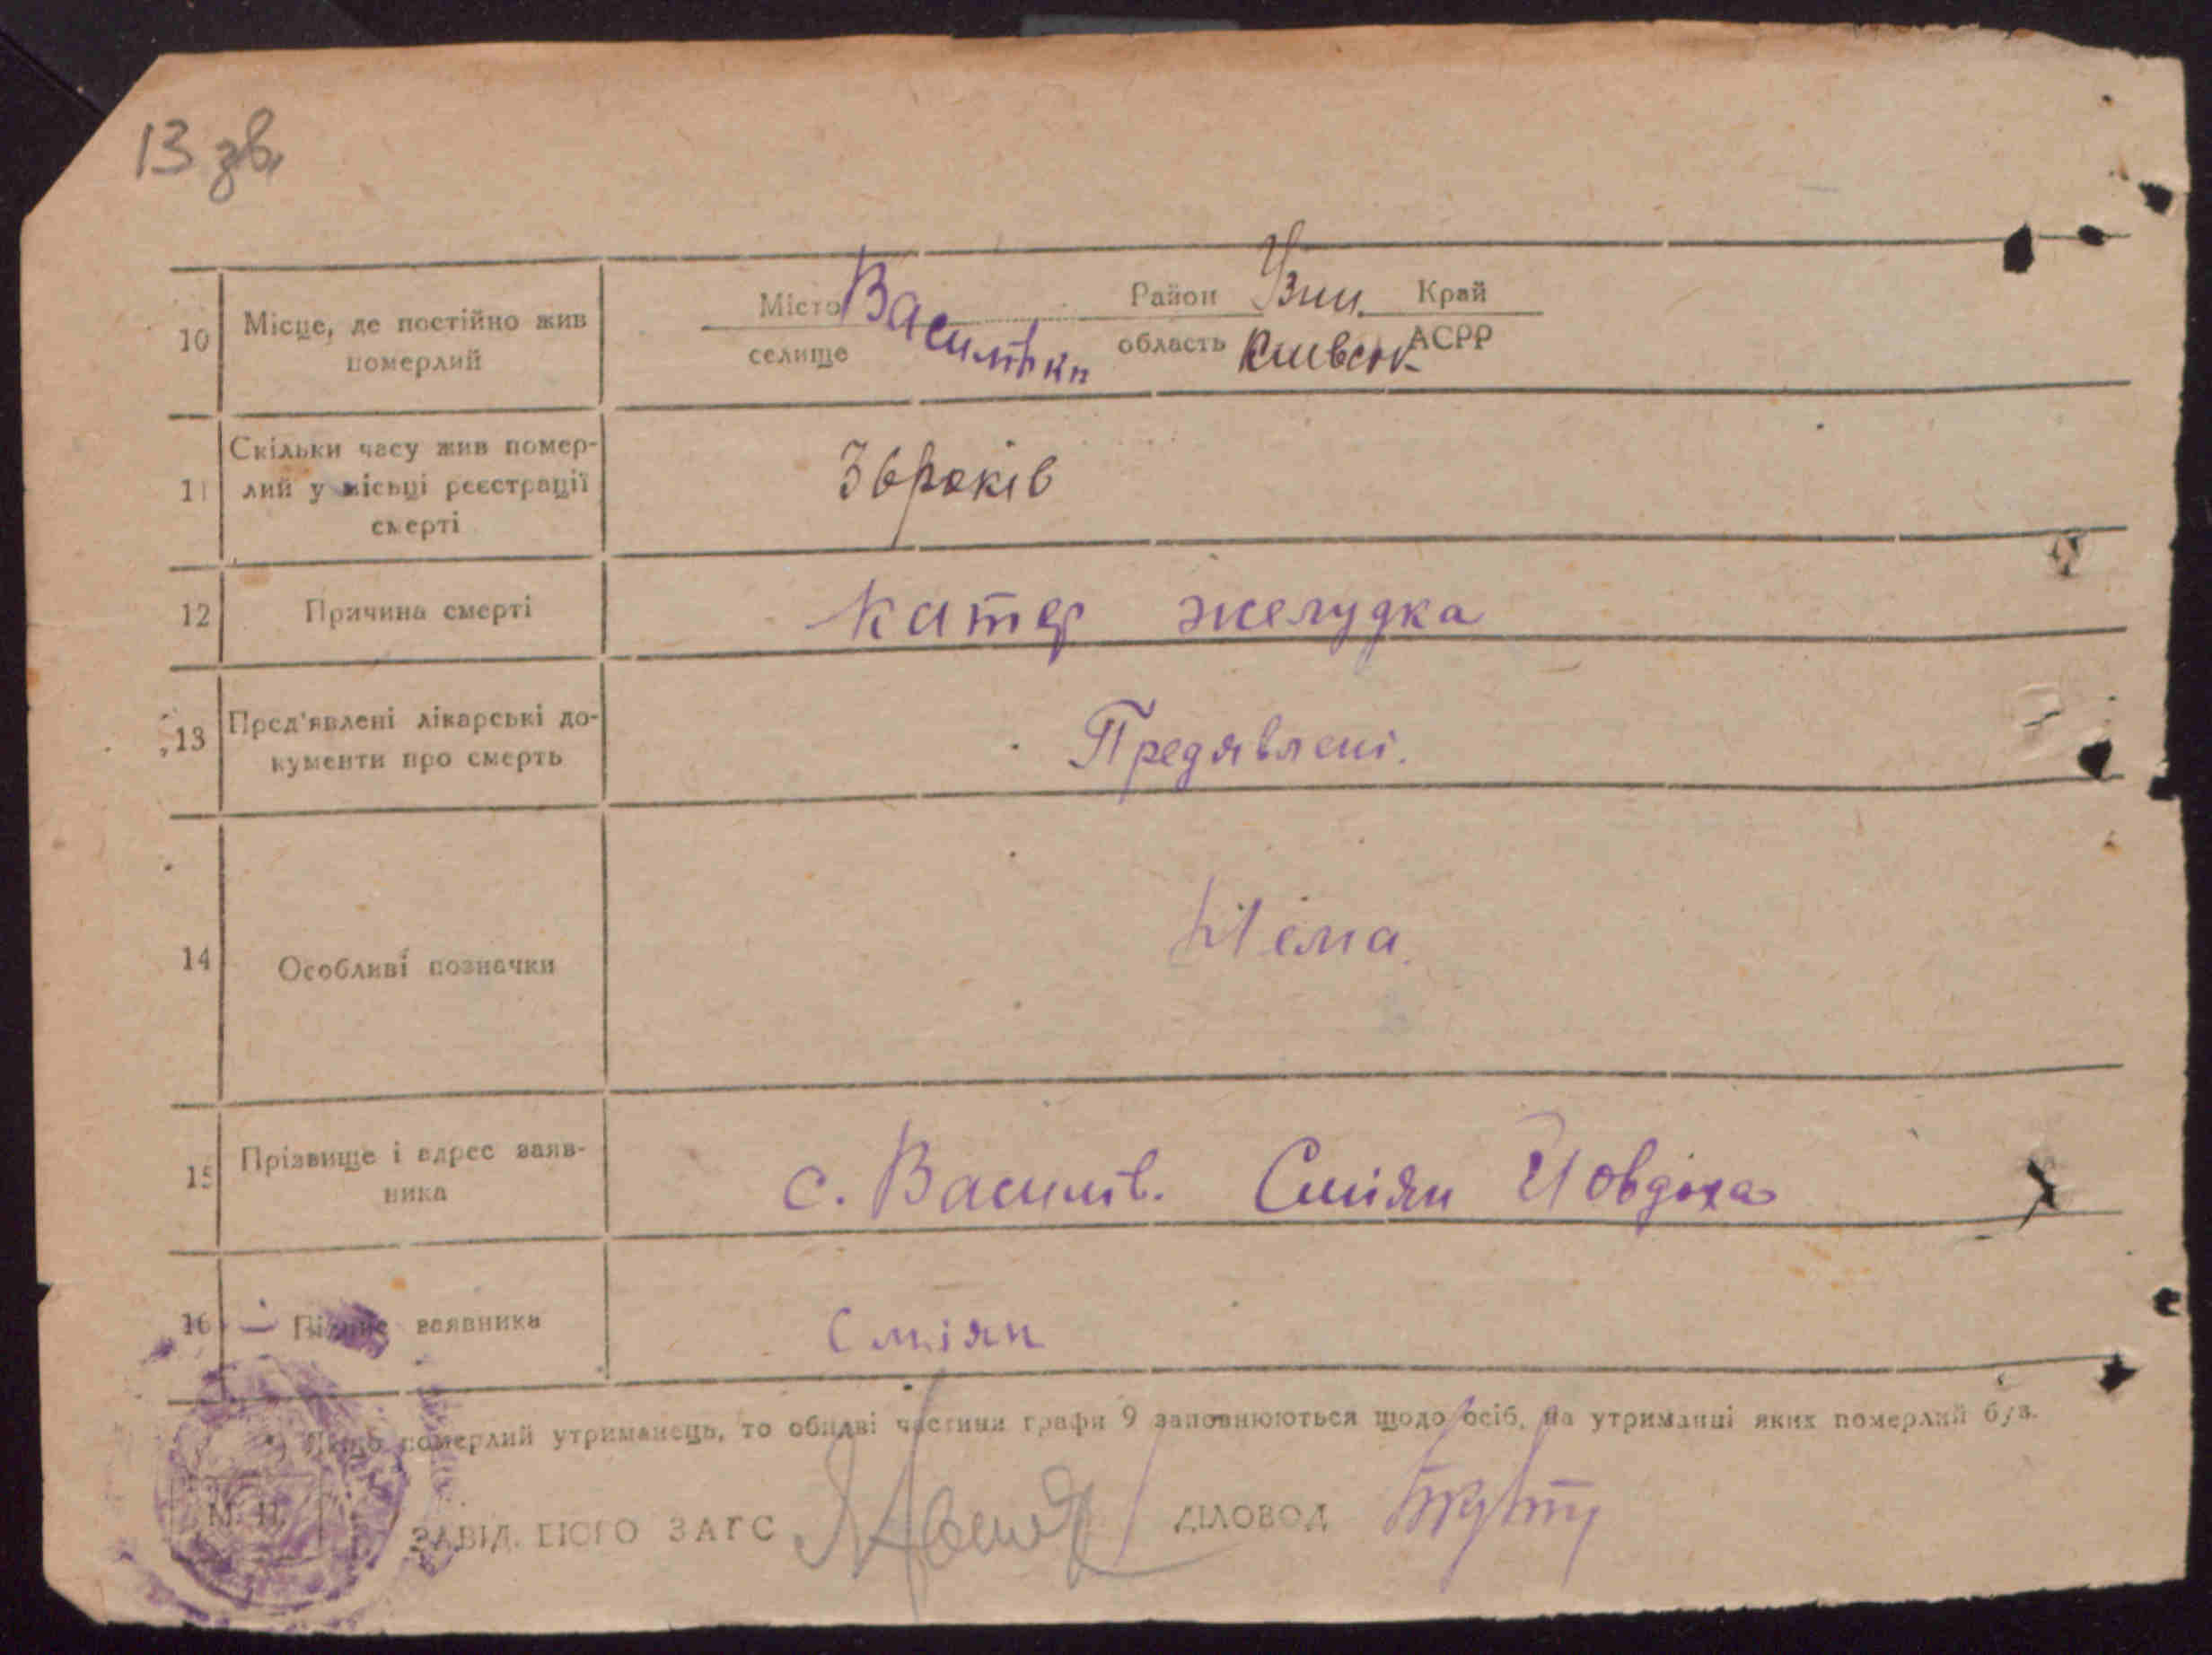 13 зв.
10 Місце, де постійно жив померлий
Місто Василівка Район Узин. Край
селище область Київськ АСРР
11 Скільки часу жив помер-
лий у місьці реєстрації
смерті
36 років
12 Причина смерті Катер желудка
13 Пред'явлені лікарські до-
кументи про смерть
Предявлені.
14 Особливі позначки Нема.
15 Прізвище і адрес заяв-
ника
с. Василів. Сміян Йовдоха
16 Підпис заявника Сміян
*) Якщо померлий утриманець, то обидві частини графи 9 заповнюються щодо осіб, на утриманні яких померлий був.
М. П.
ЗАВІД. БЮРО ЗАГС ДІЛОВОД